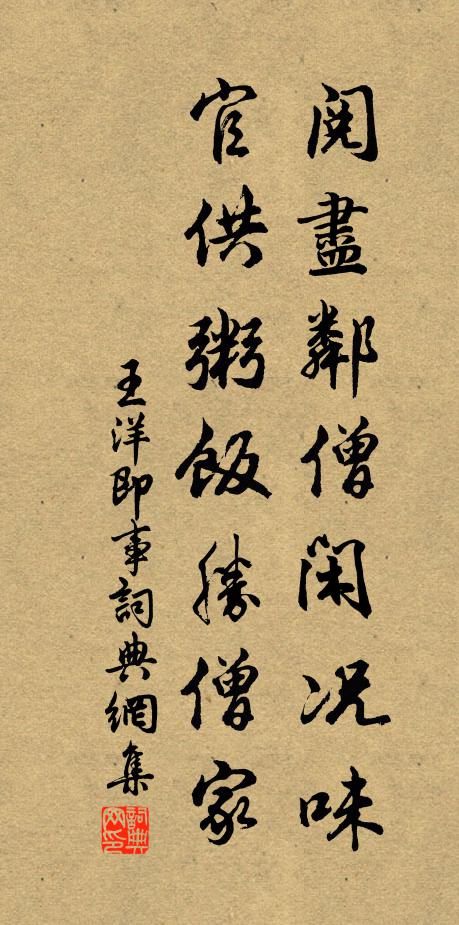 閱盡鄰僧閑況味
官供粥飯勝僧家
王洋即事詞典網集
詞典網印